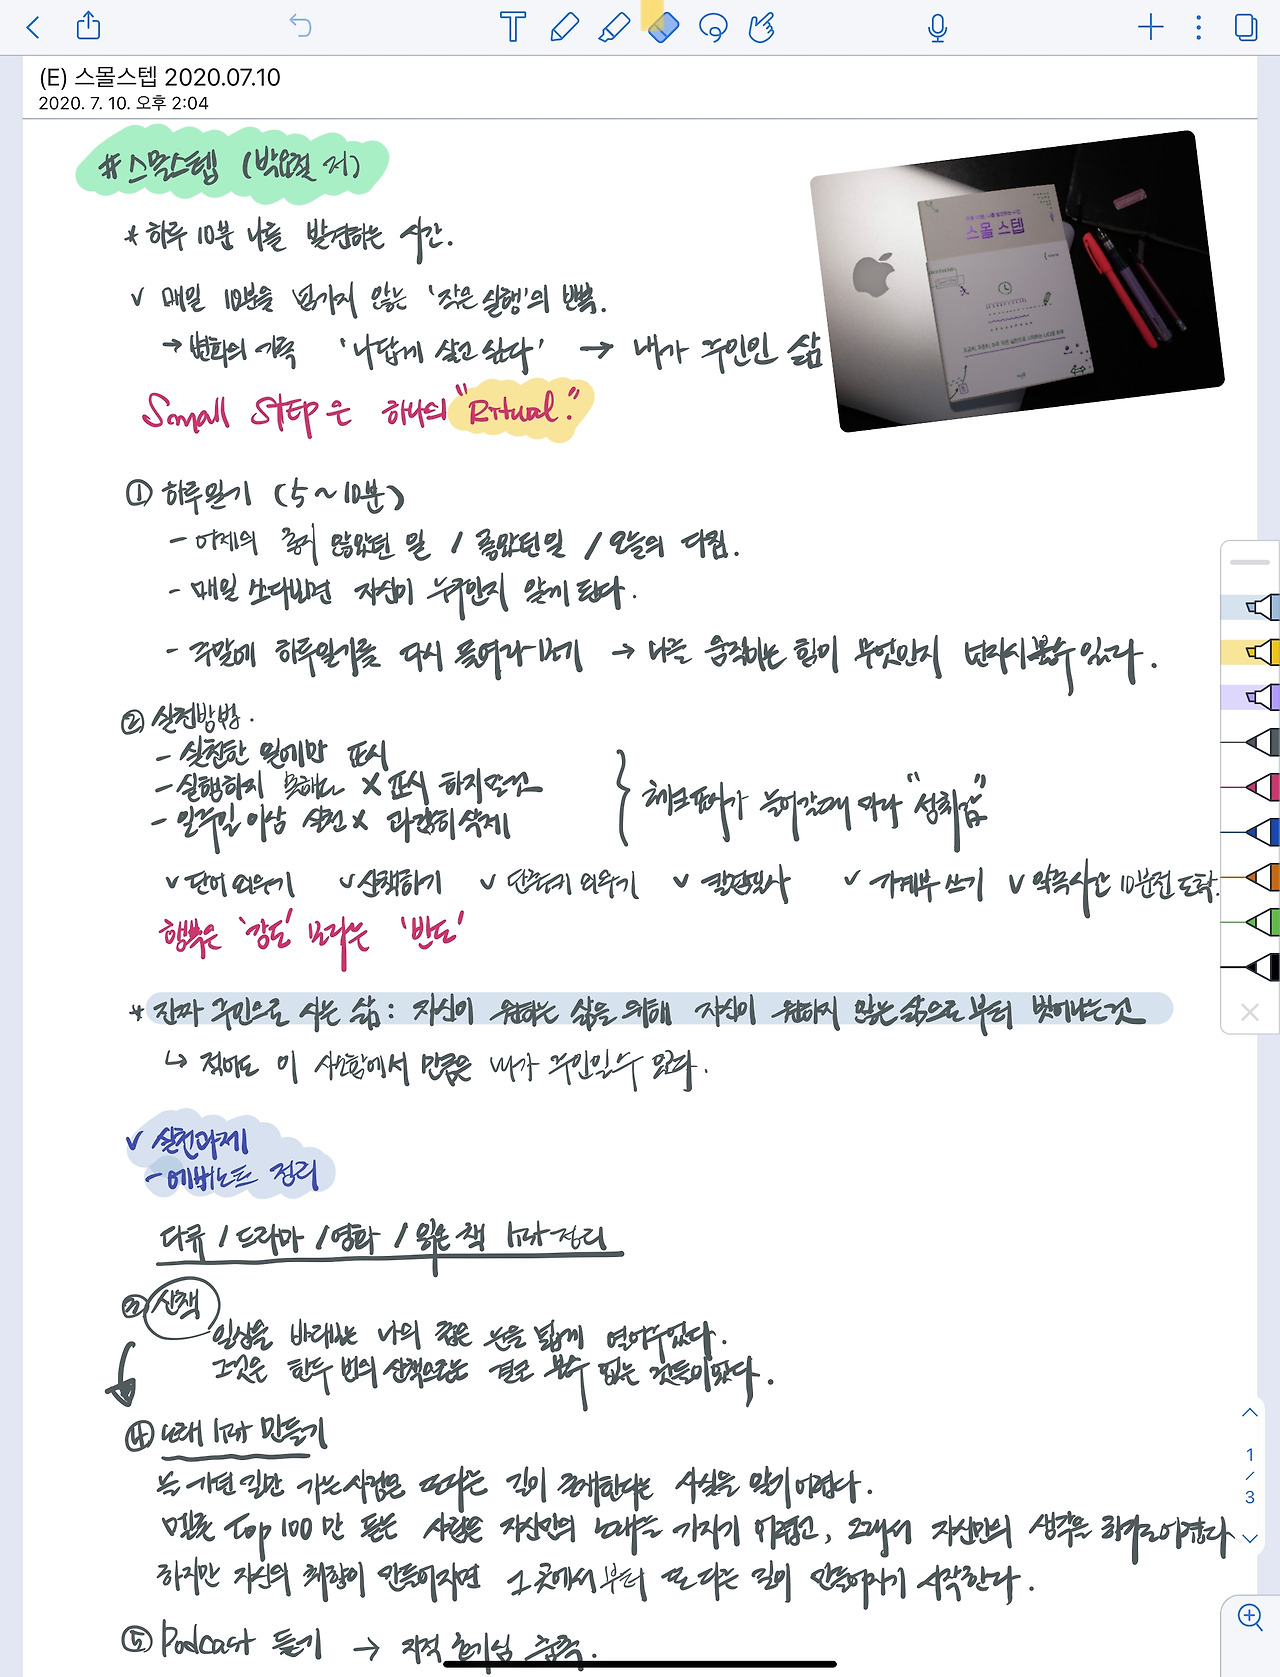 (E) 스몰스텝 2020.07.10
2020. 7. 10. 오후 2:04
# 스몰스텝 (박요철 저)
* 하루 10분 나를 발견하는 시간.
스몰 스텝
v 매일 10분을 넘기지 않는 '작은 실행'의 반복.
→ 변화의 기록 '나답게 살고 싶다' → 내가 주인인 삶
Small STEP은 하나의 "Ritual."
① 하루일기 (5~10분)
- 어제의 좋지 않았던 일 / 좋았던 일 / 오늘의 다짐.
- 매일 쓰다보면 자신이 누구인지 알게 된다.
- 주말에 하루일기를 다시 들여다보기 → 나를 움직이는 힘이 무엇인지 넌지시 볼 수 있다.
② 실천방법.
- 실천한 일에만 표시
- 실행하지 못해도 X 표시 하지말것
- 일주일 이상 실천 X 과감히 삭제
} 체크표시가 늘어갈때 마다 "성취감"
v 단어 외우기 v 산책하기 v 단축키 외우기 v 칼럼필사 v 가계부 쓰기 v 약속시간 10분전 도착.
행복은 '강도' 보다는 '빈도'
* 진짜 주인으로 사는 삶 : 자신이 원하는 삶을 위해 자신이 원하지 않는 삶으로 부터 벗어나는 것
↳ 적어도 이 사소함에서 만큼은 내가 주인일 수 있다.
v 실천과제
- 에버노트 정리
다큐 / 드라마 / 영화 / 읽은 책 list 정리
③ 산책
일상을 바라보는 나의 좁은 눈을 넓게 열어주었다.
그것은 한두 번의 산책으로는 결코 볼수 없는 것들이었다.
④ 노래 list 만들기
늘 가던 길만 가는 사람은 또다른 길이 존재한다는 사실을 알기 어렵다.
멜론 Top 100 만 듣는 사람은 자신만의 노래를 가지기 어렵고, 그래서 자신만의 생각을 하기도 어렵다
하지만 자신의 취향이 만들어지면 그 곳에서 부터 또 다른 길이 만들어지기 시작한다.
⑤ Podcast 듣기 → 지적 호기심 충족.
1
/
3